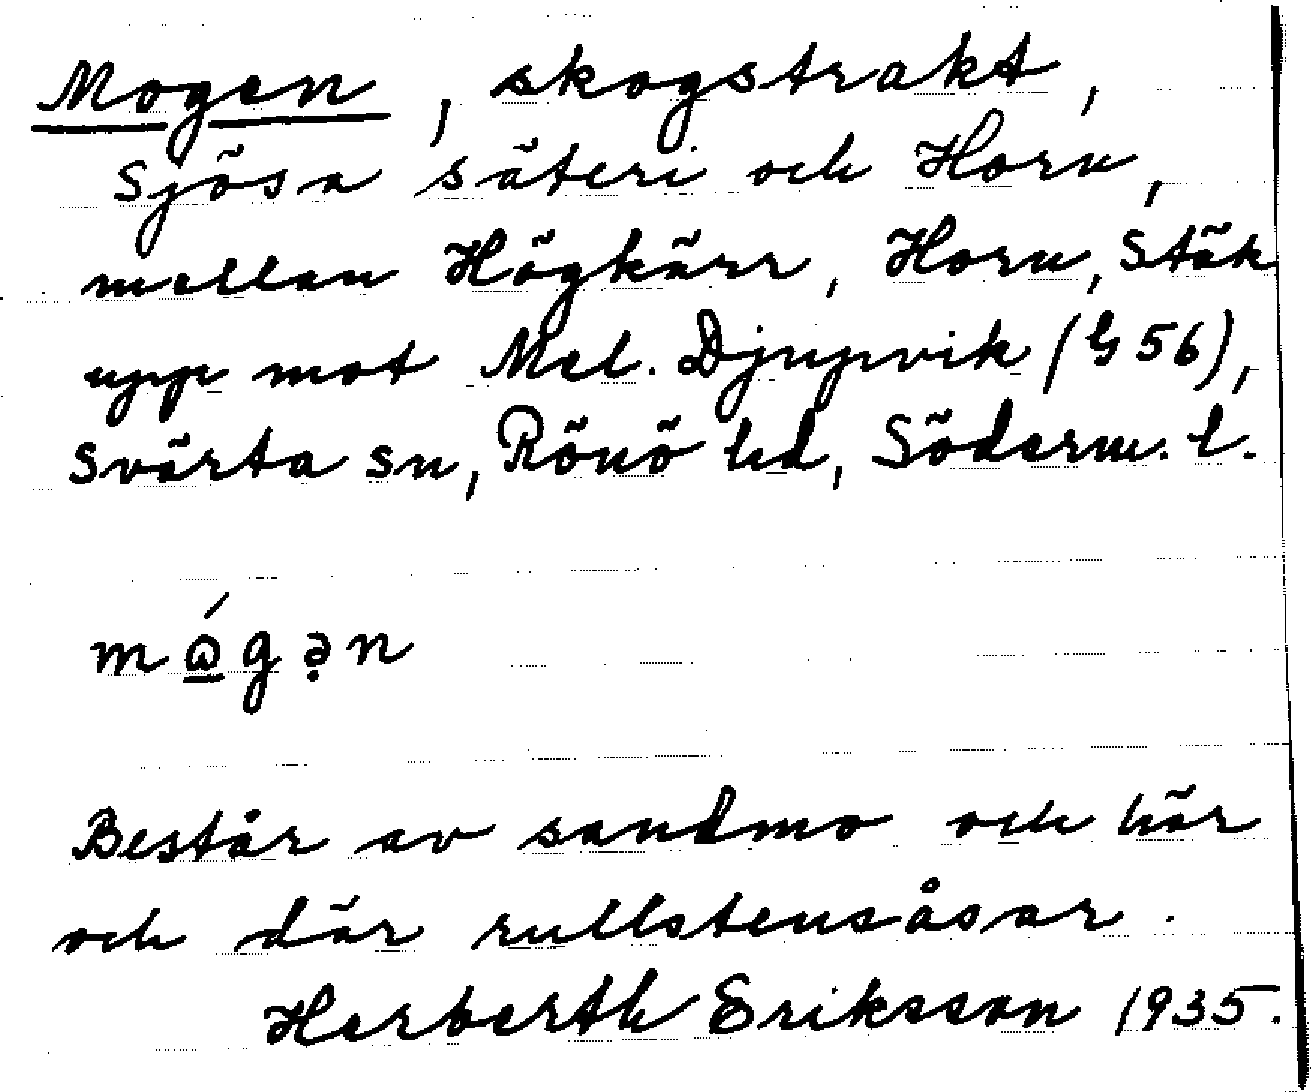 Mogen, skogstrakt,
Sjösa säteri och Horn,
mellan Högkärr, Horn, Stäk
upp mot Mel. Djupvik (G 56),
Svärta sn, Rönö hd, Söderm. l.
mώgən
Består av sandmo och här
och där rullstensåsar.
Herberth Eriksson 1935.